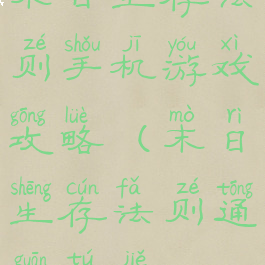 末日生存法
zé shǒu jī yóu xì
则手机游戏
gōng lüè mò rì
攻略（末日
shēng cún fǎ zé tōng
生存法则通
guān tú jiě